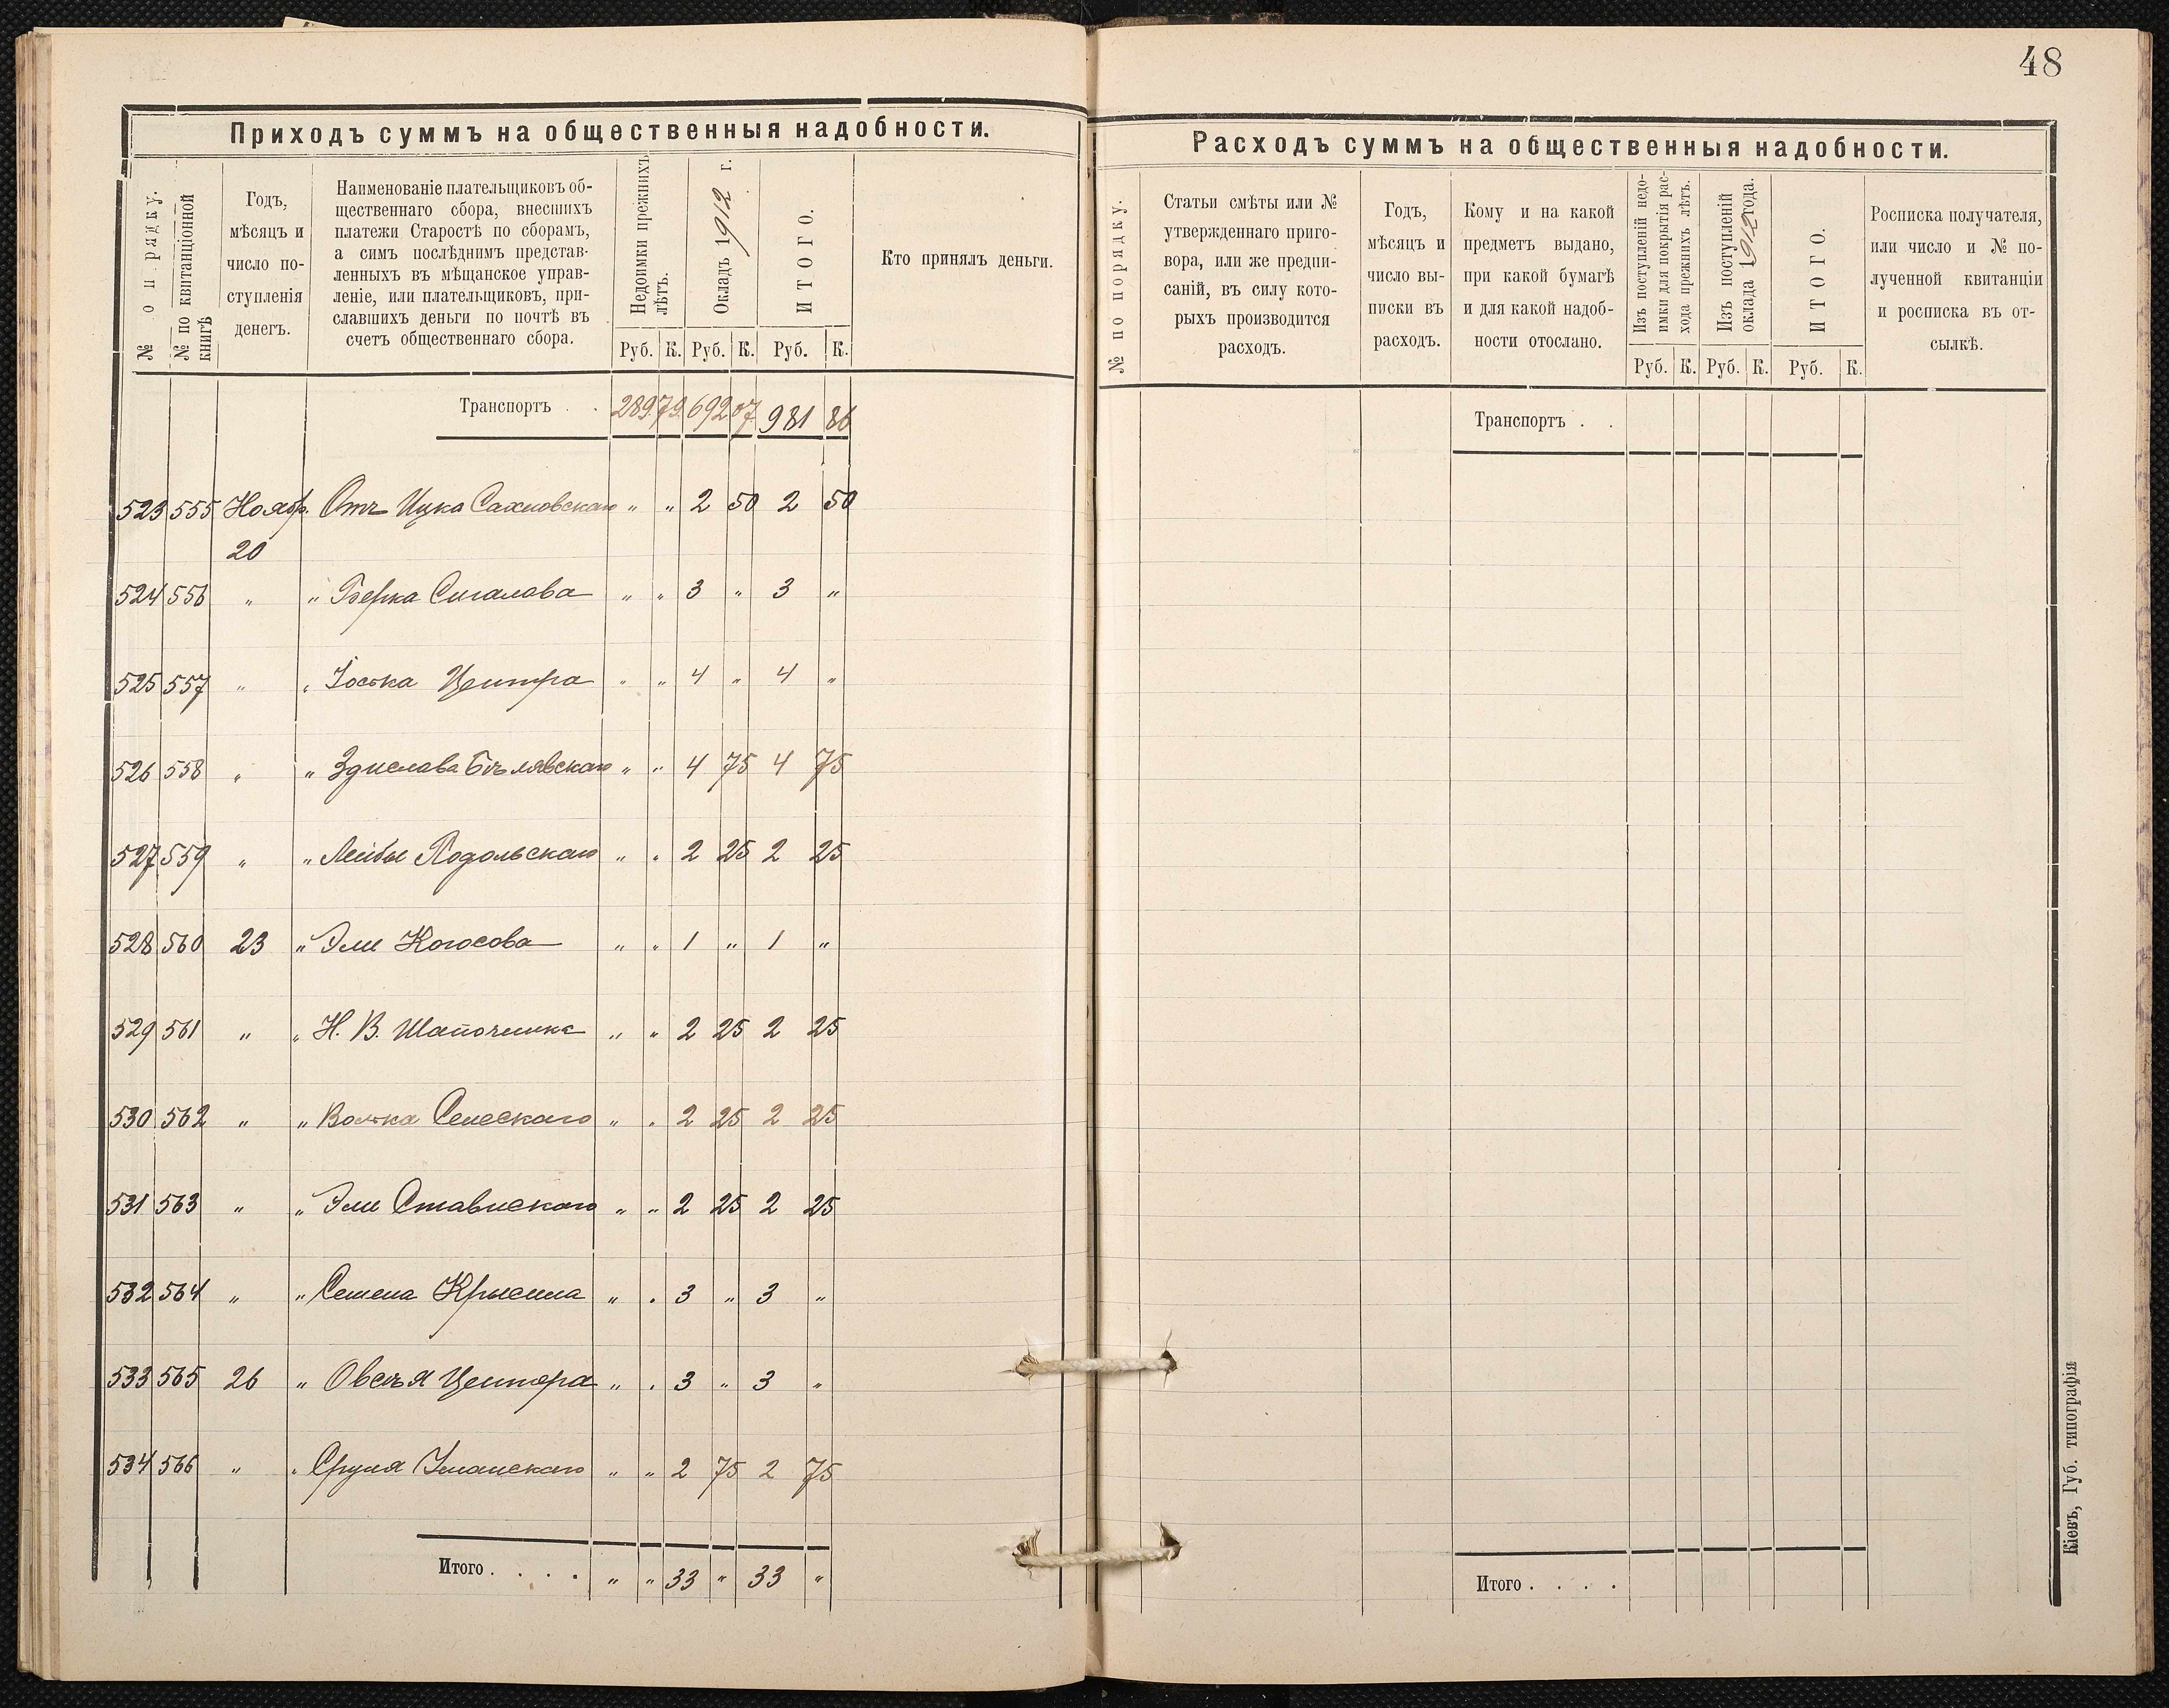 48
Приходъ суммъ на общественныя надобности.
№ по порядку.
№ по квитанціонной
книгѣ
Годъ,
мѣсяцъ и
число по-
ступленія
денегъ.
Наименованіе плательщиковъ об-
щественнаго сбора, внесшихъ
платежи Старостѣ по сборамъ,
а симъ послѣднимъ представ-
ленныхъ въ мѣщанское управ-
леніе, или плательщиковъ, при-
славшихъ деньги по почтѣ въ
счетъ общественнаго сбора.
Недоимки прежнихъ
лѣтъ.
Окладъ 1912 г.
ИТОГО.
Руб. К. Руб. К. Руб. К.
Кто принялъ деньги.
Транспортъ . . 289 79 692 07 981 86
523 555 Ноябр. Отъ Ицка Сахновскаго " " 2 50 2 50
20
524 556 " " Берка Сигалова " " 3 " 3 "
525 557 " " Іоська Центра " " 4 " 4 "
526 558 " " Здислава Бѣлявскаго " " 4 75 4 75
527 559 " " Лейбы Подольскаго " " 2 25 2 25
528 560 23 " Эли Когосова " " 1 " 1 "
529 561 " " Н. В. Шапочника " " 2 25 2 25
530 562 " " Волька " " 2 25 2 25
531 563 " " Эли Ставискаго " " 2 25 2 25
532 564 " " Семена Крысина " " 3 " 3 "
533 565 26 " Овсѣя Центера " " 3 " 3 "
534 566 " " Сруля Уманскаго " " 2 75 2 75
Итого . . . . " " 33 " 33 "
Расходъ суммъ на общественныя надобности.
№ по порядку.
Статьи смѣты или №
утвержденнаго приго-
вора, или же предпи-
саній, въ силу кото-
рыхъ производится
расходъ.
Годъ,
мѣсяцъ и
число вы-
писки въ
расходъ.
Кому и на какой
предметъ выдано,
при какой бумагѣ
и для какой надоб-
ности отослано.
Изъ поступленій недо-
имки для покрытія рас-
хода прежнихъ лѣтъ.
Изъ поступленій
оклада 1912 года.
ИТОГО.
Руб. К. Руб. К. Руб. К.
Росписка получателя,
или число и № по-
лученной квитанціи
и росписка въ от-
сылкѣ.
Транспортъ . .
Итого . . . .
Кіевъ, Губ. типографія